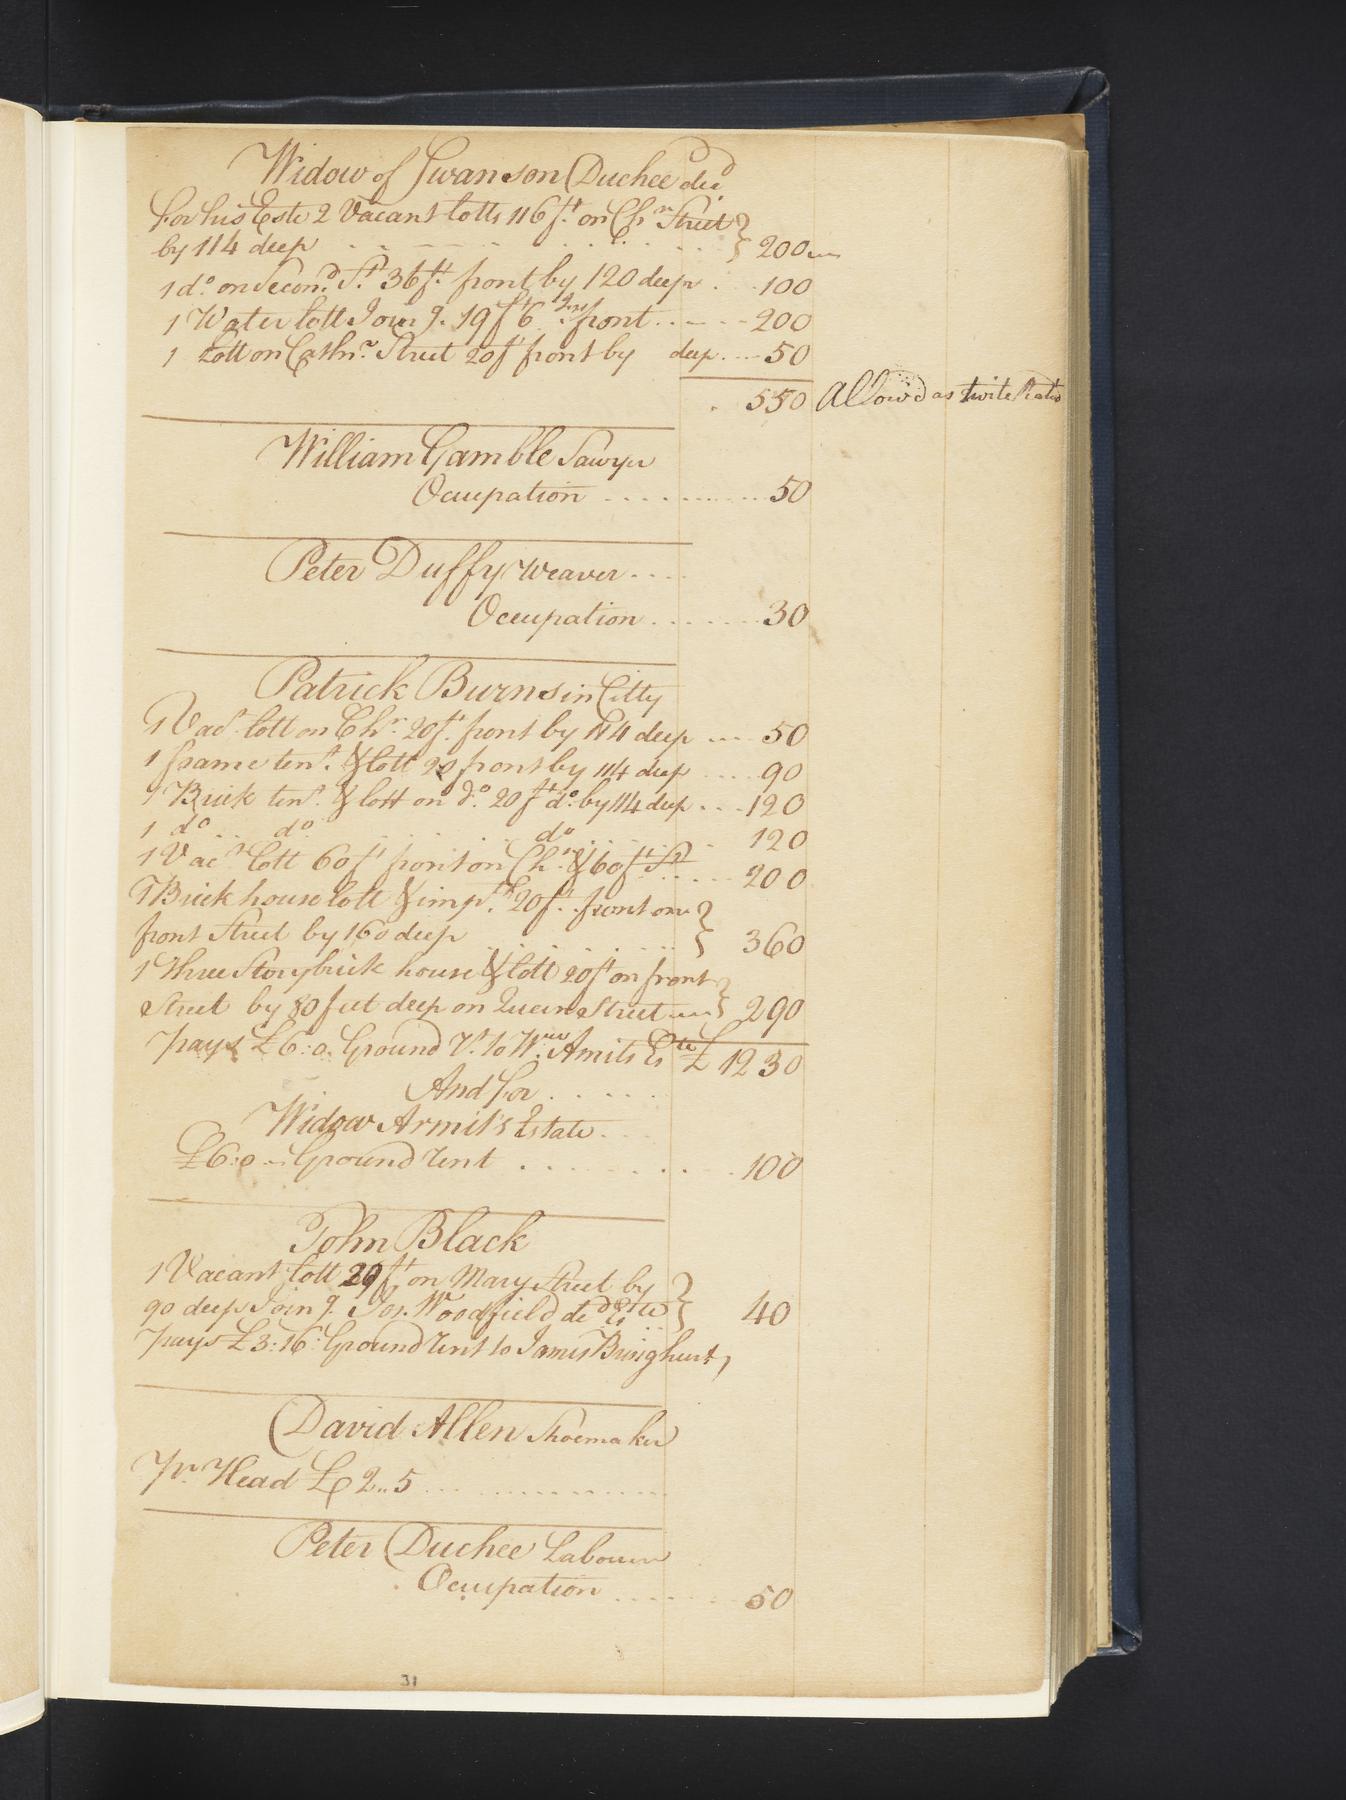 Widow of Swanson Duchee decd
for his Este 2 Vacant lotts 116 ft on Chrn Street
by 114 deep 200
1 do on Second St 36 ft front by 120 deep 100
1 Water lott Joing 19 ft 6 Ins front 200
1 Lott on Cathne Street 20 ft front by deep 50
550 Allow'd as
William Gamble Sawyer
Ocupation 50
Peter Duffy Weaver
Occupation 30
Patrick Burns in Citty
1 Vact lott on Chn 20 ft front by 114 deep 50
1 frame tent & lott 20 front by 114 deep 90
1 Brick tent & lott on do 20 ft do by 114 deep 120
1 do do do 120
1 Vact Lott 60 ft front on Chn & 60 ft St 200
1 Brick house lott & impts 20 ft front on
front Street by 160 deep 360
1 Three Story brick house & lott 20 ft on front
Street by 80 feet deep on Queen Street 290
pays £6:0 Ground Rt to Wm Armits Este £ 1230
And for
Widow Armit's Estate
£6:0 Ground Rent 100
John Black
1 Vacant lott 20 ft on Mary Street by
90 deep Joing Jos. Woodfield decd Este 40
pays £3:16 Ground Rent to James Bringhurst,
David Allen Shoemaker
Pr Head £ 2..5
Peter Duchee Labourer
Ocupation 50
31